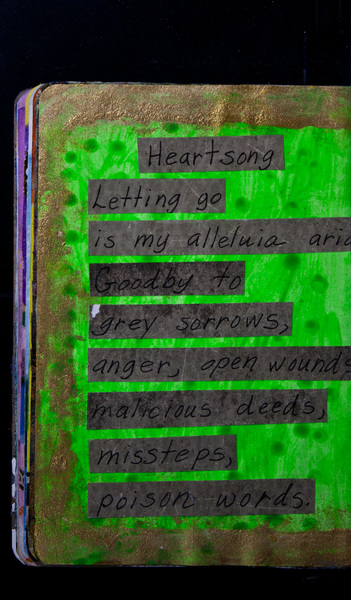 Heartsong
Letting go
is my alleluia aria
Goodby to
grey sorrows,
anger, open wounds
malicious deeds,
missteps,
poison words.